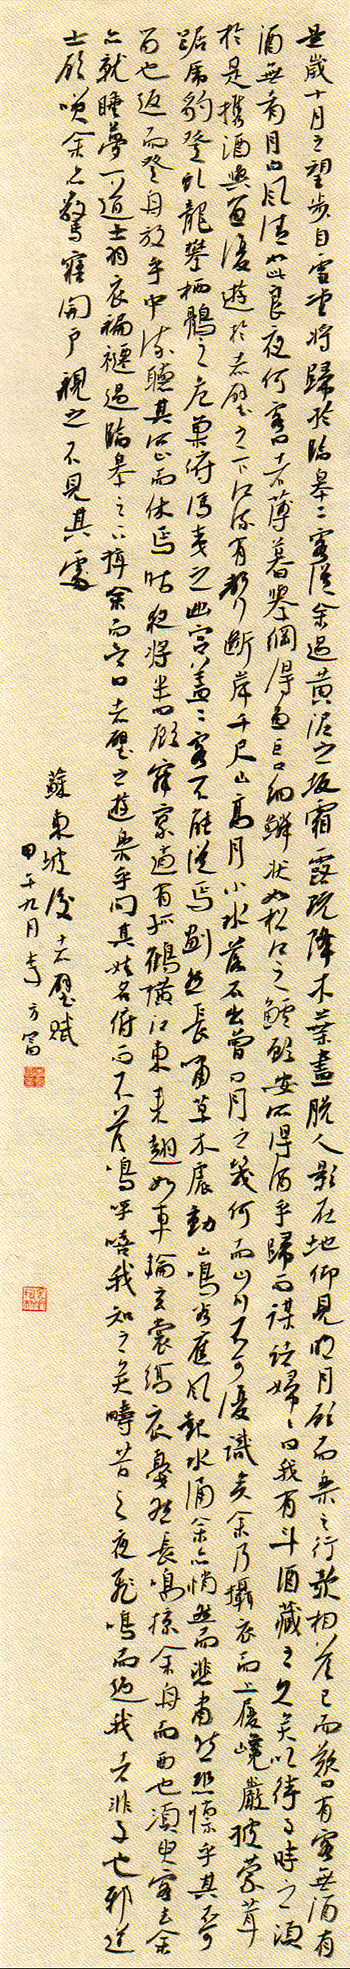 是歲十月之望步自雪堂將歸於臨皋二客從余過黃泥之坂霜露既降木葉盡脫人影在地仰見明月顧而樂之行歌相答已而歎曰有客無酒有
酒無肴月白風清如此良夜何客曰今者薄暮舉網得魚巨口細鱗狀如松江之鱸顧安所得酒乎歸而謀諸婦婦曰我有斗酒藏之久矣以待子不時之須
於是攜酒與魚復遊於赤壁之下江流有聲斷岸千尺山高月小水落石出曾日月之幾何而江山不可復識矣余乃攝衣而上履巉巖披蒙茸
踞虎豹登虬龍攀栖鶻之危巢俯馮夷之幽宮蓋二客不能從焉劃然長嘯草木震動山鳴谷應風起水涌余亦悄然而悲肅然而恐凜乎其不可
留也返而登舟放乎中流聽其所止而休焉時夜將半四顧寂寥適有孤鶴橫江東來翅如車輪玄裳縞衣戛然長鳴掠余舟而西也須臾客去余
亦就睡夢一道士羽衣褊褼過臨皋之下揖余而言曰赤壁之遊樂乎問其姓名俯而不答嗚呼噫嘻我知之矣疇昔之夜飛鳴而過我者非子也邪道
士顧笑余亦驚寤開戶視之不見其處
蘇東坡後赤壁賦
甲午九月李方富